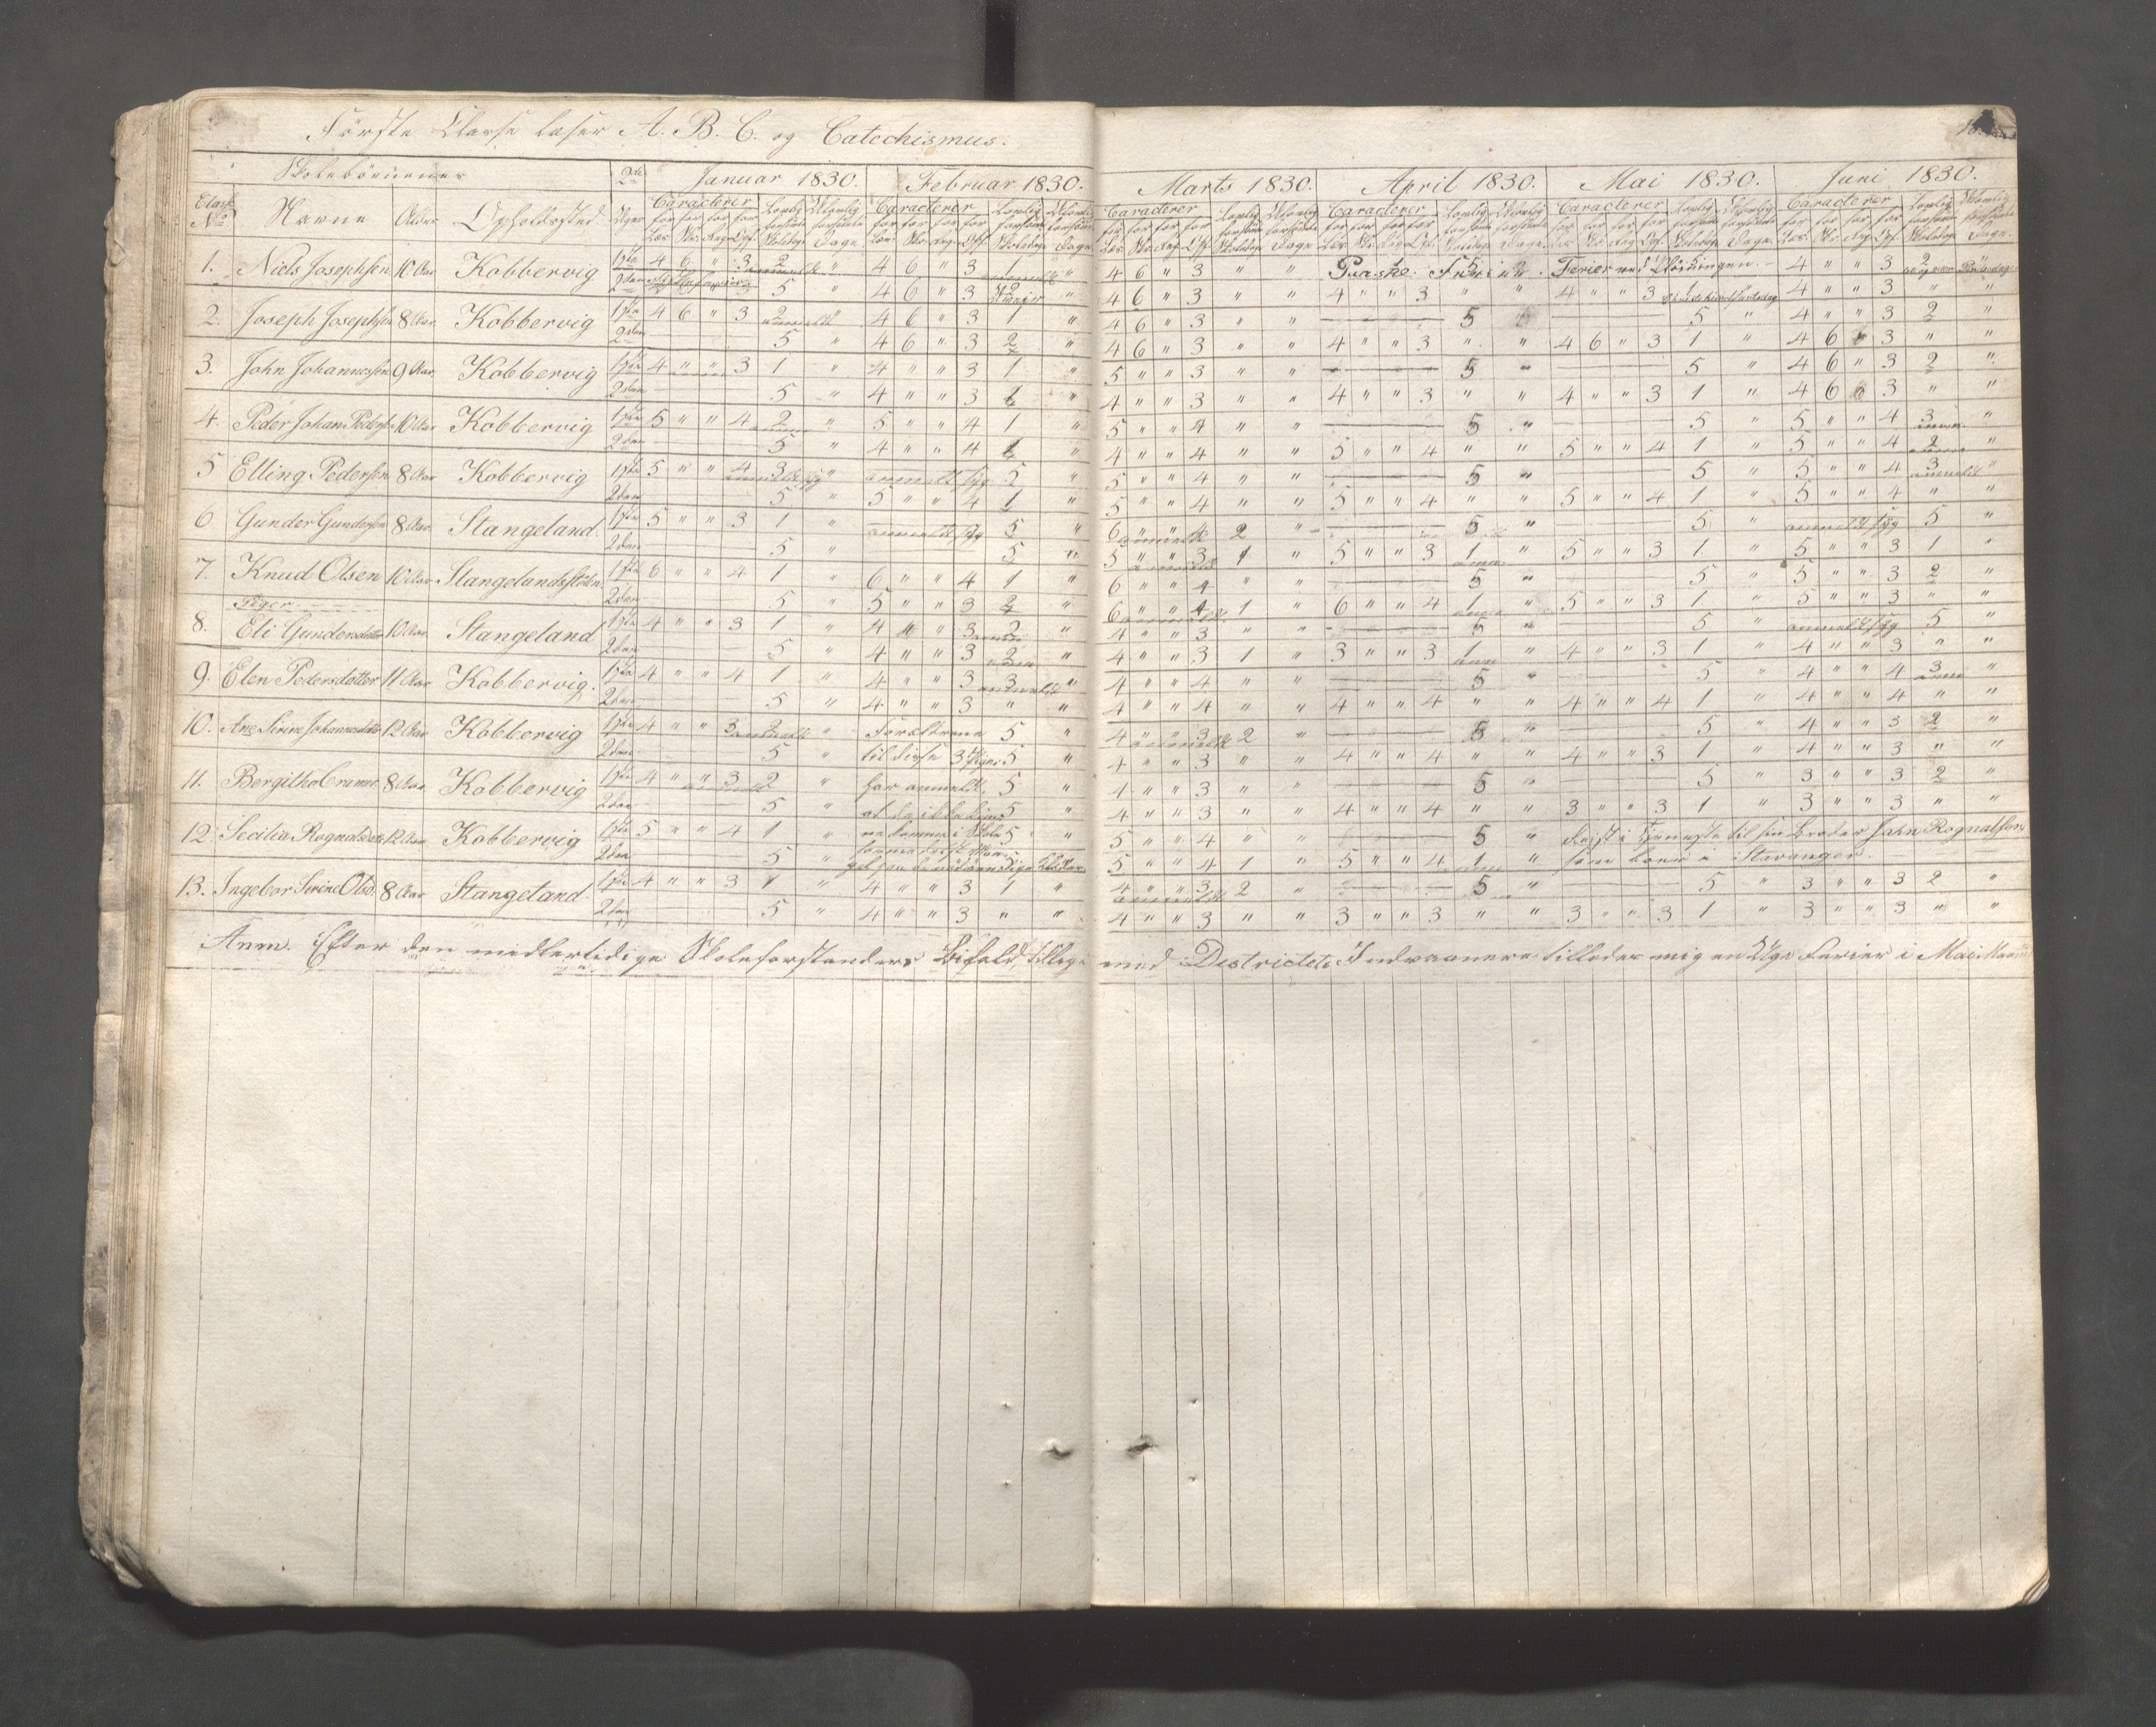 Förste Classe læser A. B. C. og Catechismus.
Skolebörnenes
Januar 1830. Februar 1830. Marts 1830. April 1830. Mai 1830. Juni 1830.
Classe No. Navne Alder Opholdssted Uger Caracterer Caracterer Caracterer Caracterer Caracterer Caracterer
1. Niels Josephsen 10 Aar Kobbervig 1ste 4 6 " 3 2 " 4 6 " 3 1 " 4 6 " 3 " " Paaske Ferier Ferier ved Våringen. 4 " " 3 2
2den 5 " 4 6 " 3 2 " 4 6 " 3 " " 4 " " 3 " " 4 " " 3 1 4 " " 3 " "
2. Joseph Josephsen 8 Aar Kobbervig 1ste 4 6 " 3 2 anmeldt " 4 6 " 3 1 " 4 6 " 3 " " 5 5 " 4 " " 3 2 "
2den 5 " 4 6 " 3 2 " 4 6 " 3 " " 4 " " 3 " " 4 6 " 3 1 " 4 6 " 3 " "
3. John Johannessen 9 Aar Kobbervig 1ste 4 " " 3 1 " 4 " " 3 1 " 5 " " 3 " " 5 " 5 " 4 6 " 3 2 "
2den 5 " 4 " " 3 1 " 4 " " 3 " " 4 " " 3 " " 4 " " 3 1 " 4 6 6 3 " "
4. Peder Johan Pedersen 10 Aar Kobbervig 1ste 5 " " 4 2 " 5 " " 4 1 " 5 " " 4 " " 5 " 5 " 5 " " 4 3 "
2den 5 " 4 " " 4 1 " 4 " " 4 " " 5 " " 4 " " 5 " " 4 1 " 5 " " 4 2 "
5 Elling Pedersen 8 Aar Kobbervig 1ste 5 " " 4 3 " anmeldt syg 5 " 5 " " 4 " " 5 " 5 " 5 " " 4 3 anmeldt "
2den 5 " 5 " " 4 1 " 5 " " 4 " " 5 " " 4 " " 5 " " 4 1 " 5 " " 4 " "
6 Gunder Gundersen 8 Aar Stangeland. 1ste 5 " " 3 1 " anmeldt syg 5 " 6 " " 4 2 " 5 " 5 " anmeldt syg 5 "
2den 5 " 5 " 5 " " 3 1 " 5 " " 3 1 " 5 " " 3 1 " 5 " " 3 1 "
7. Knud Olsen 10 Aar Stangelandsstölen 1ste 6 " " 4 1 " 6 " " 4 1 " 6 " " 4 " " 5 " 5 " 5 " " 3 2 "
2den 5 " 5 " " 3 2 " 6 " " 4 1 " 6 " " 4 1 " 5 " " 3 1 " 5 " " 3 " "
Piger
8. Eli Gundersdatter 10 Aar Stangeland 1ste 4 " " 3 1 " 4 " " 3 2 " 4 " " 3 " " 5 " 5 " anmeldt syg 5 "
2den 5 " 4 " " 3 2 " 4 " " 3 1 " 3 " " 3 1 " 4 " " 3 1 " 4 " " 3 " "
9. Elen Pedersdatter 11 Aar Kobbervig. 1ste 4 " " 4 1 " 4 " " 3 3 anmeldt " 4 " " 4 " " 5 " 5 " 4 " " 4 3 "
2den 5 " 4 " " 3 " " 4 " " 4 " " 4 " " 4 " " 4 " " 4 1 " 4 " " 4 " "
10. Ane Serine Johannesdatter 12 Aar Kobbervig 1ste 4 " " 3 2 anmeldt " Forældrene 5 " 4 " " 3 2 " 5 " 5 " 4 " " 3 2 "
2den 5 " til disse 3 Piger 5 " 4 " " 3 " " 4 " " 4 " " 4 " " 3 1 " 4 " " 3 " "
11. Bergithe Cramer 8 Aar Kobbervig 1ste 4 " " 3 2 " har anmeldt, 5 " 4 " " 3 " " 5 " 5 " 3 " " 3 2 "
2den 5 " at de ikke kun- 5 " 4 " " 3 " " 4 " " 4 " " 3 " " 3 1 " 3 " " 3 " "
12. Secilia Rognaldsdatter 12 Aar Kobbervig 1ste 5 " " 4 1 " ne komme i Skole 5 " 5 " " 4 " " 5 " Reist i Tjeneste til sin Broder John Rognaldsen,
2den 5 " 5 " " 4 1 " 5 " " 4 1 " som boer i Stavanger.
13. Ingebor Serine Olsd. 8 Aar Stangeland. 1ste 4 " " 3 1 " 4 " " 3 1 " 4 " " 3 2 " 5 " 5 " 3 " " 3 2 "
2den 5 " 4 " " 3 " " 4 " " 3 " " 3 " " 3 " " 3 " " 3 1 " 3 " " 3 " "
Anm. Efter den midlertidige Skoleforstanders Bifald, tillige med Districtets Indvaanere tillodes mig en Uge Ferier i Mai Maaned